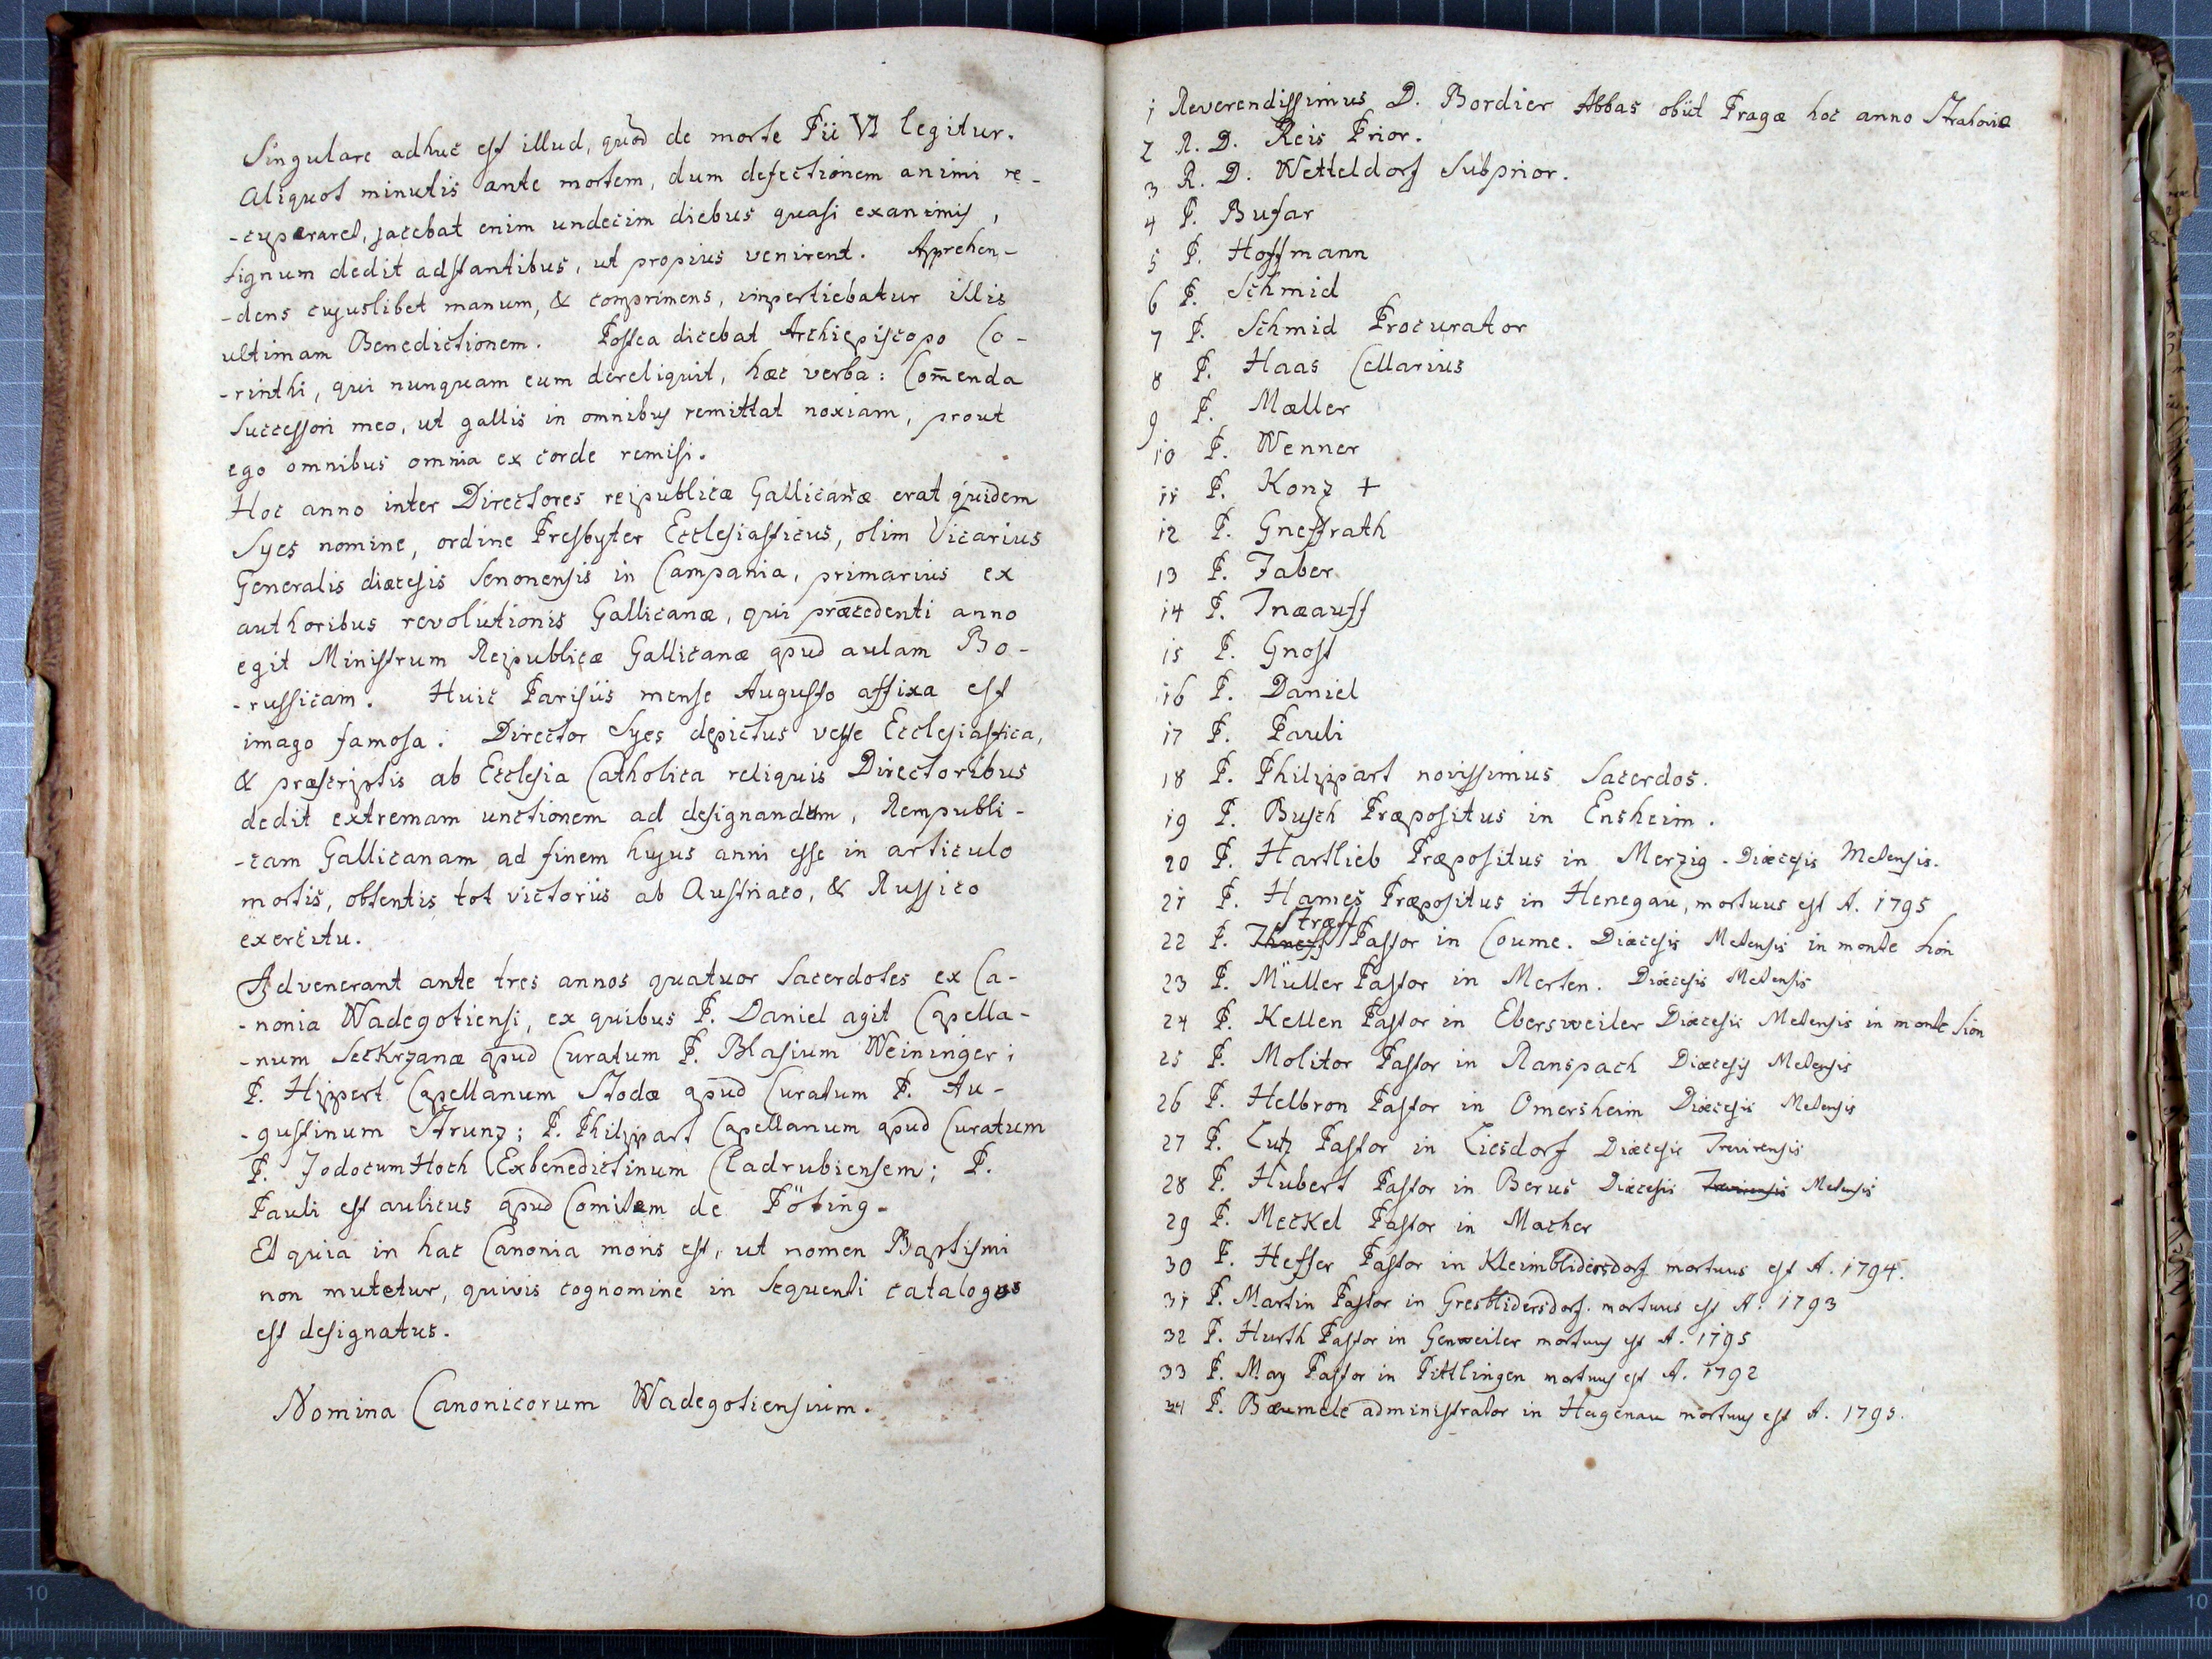 Singulare adhuc est illud, quod de morte Pii VI legitur.
Aliquot minutis ante mortem, dum defectionem animi re-
-cuperaret, jacebat enim undecim diebus quasi exanimis,
signum dedit adstantibus, ut propius venirent. Apprehen-
-dens cujuslibet manum, & comprimens, impertiebatur illis
ultimam Benedictionem. Postea dicebat Archiepiscopo Co-
-rinthi, qui nunquam eum dereliquit, hæc verba: Com̄enda
Successori meo, ut gallis in omnibus remittat noxiam, prout
ego omnibus omnia ex corde remisi.
Hoc anno inter Directores reipublicæ Gallicanæ erat quidem
Syes nomine, ordine Presbyter Ecclesiasticus, olim Vicarius
Generalis diæcesis Senonensis in Campania, primarius ex
authoribus revolutionis Gallicanæ, qui præcedenti anno
egit Ministrum Reipublicæ Gallicanæ apud aulam Bo-
-russicam. Huic Parisiis mense Augusto affixa est
imago famosa: Director Syes depictus veste Ecclesiastica,
& præscriptis ab Ecclesia Catholica reliquis Directoribus
dedit extremam unctionem ad designandum, Rempubli-
-cam Gallicanam ad finem hujus anni esse in articulo
mortis, obtentis tot victoriis ab Austriaco, & Russico
exercitu.
Advenerant ante tres annos quatuor Sacerdotes ex Ca-
-nonia Wadegotiensi, ex quibus P. Daniel agit Capella-
-num Seckrzanæ apud Curatum P. Blasium Weininger;
P. Hippert Capellanum Stodæ apud Curatum P. Au-
-gustinum Strunz; P. Philippart Capellanum apud Curatum
P. Jodocum Hoch Exbenedictinum Cladrubiensem; P.
Pauli est aulicus apud Comitem de Pöting.
Et quia in hac Canonia moris est, ut nomen Baptismi
non mutetur, quivis cognomine in sequenti catalogus
est designatus.
Nomina Canonicorum Wadegotiensium.
1 Reverendissimus D. Bordier Abbas obiit Pragæ hoc anno Strahoviæ
2 R. D. Reis Prior.
3 R. D. Wetteldorf Subprior.
4 P. Busar
5 P. Hoffmann
6 P. Schmid
7 P. Schmid Procurator
8 P. Haas Cellarius
9 P. Mæller
10 P. Wenner
11 P. Konz +
12 P. Gneffrath
13 P. Faber
14 P. Inæauff
15 P. Gnost
16 P. Daniel
17 P. Pauli
18 P. Philippart novissimus Sacerdos.
19 P. Busch Præpositus in Ensheim.
20 P. Hartlieb Præpositus in Merzig. Diæcesis Metensis.
21 P. Hames Præpositus in Henegau, mortuus est A. 1795
22 P. Stræff Pastor in Coume. Diæcesis Metensis in monte Sion
23 P. Müller Pastor in Merten. Diæcesis Metensis
24 P. Kellen Pastor in Ebersweiler Diæcesis Metensis in monte Sion
25 P. Molitor Pastor in Ranspach Diæcesis Metensis
26 P. Helbron Pastor in Omersheim Diæcesis Metensis
27 P. Lutz Pastor in Liesdorf Diæcesis Trevirensis
28 P. Hubert Pastor in Berus Diæcesis Trevirensis Metensis
29 P. Meckel Pastor in Macher
30 P. Heffer Pastor in Kleimblidersdorf mortuus est A. 1794.
31 P. Martin Pastor in Gresblidersdorf. mortuus est A. 1793
32 P. Hurth Pastor in Genweiler mortuus est A. 1795
33 P. May Pastor in Pittlingen mortuus est A. 1792
34 P. Bæumele administrator in Hagenau mortuus est A. 1795.